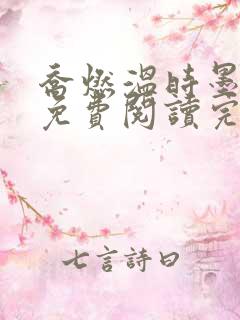 喬燃溫時墨
免費閱讀完
七言詩曰